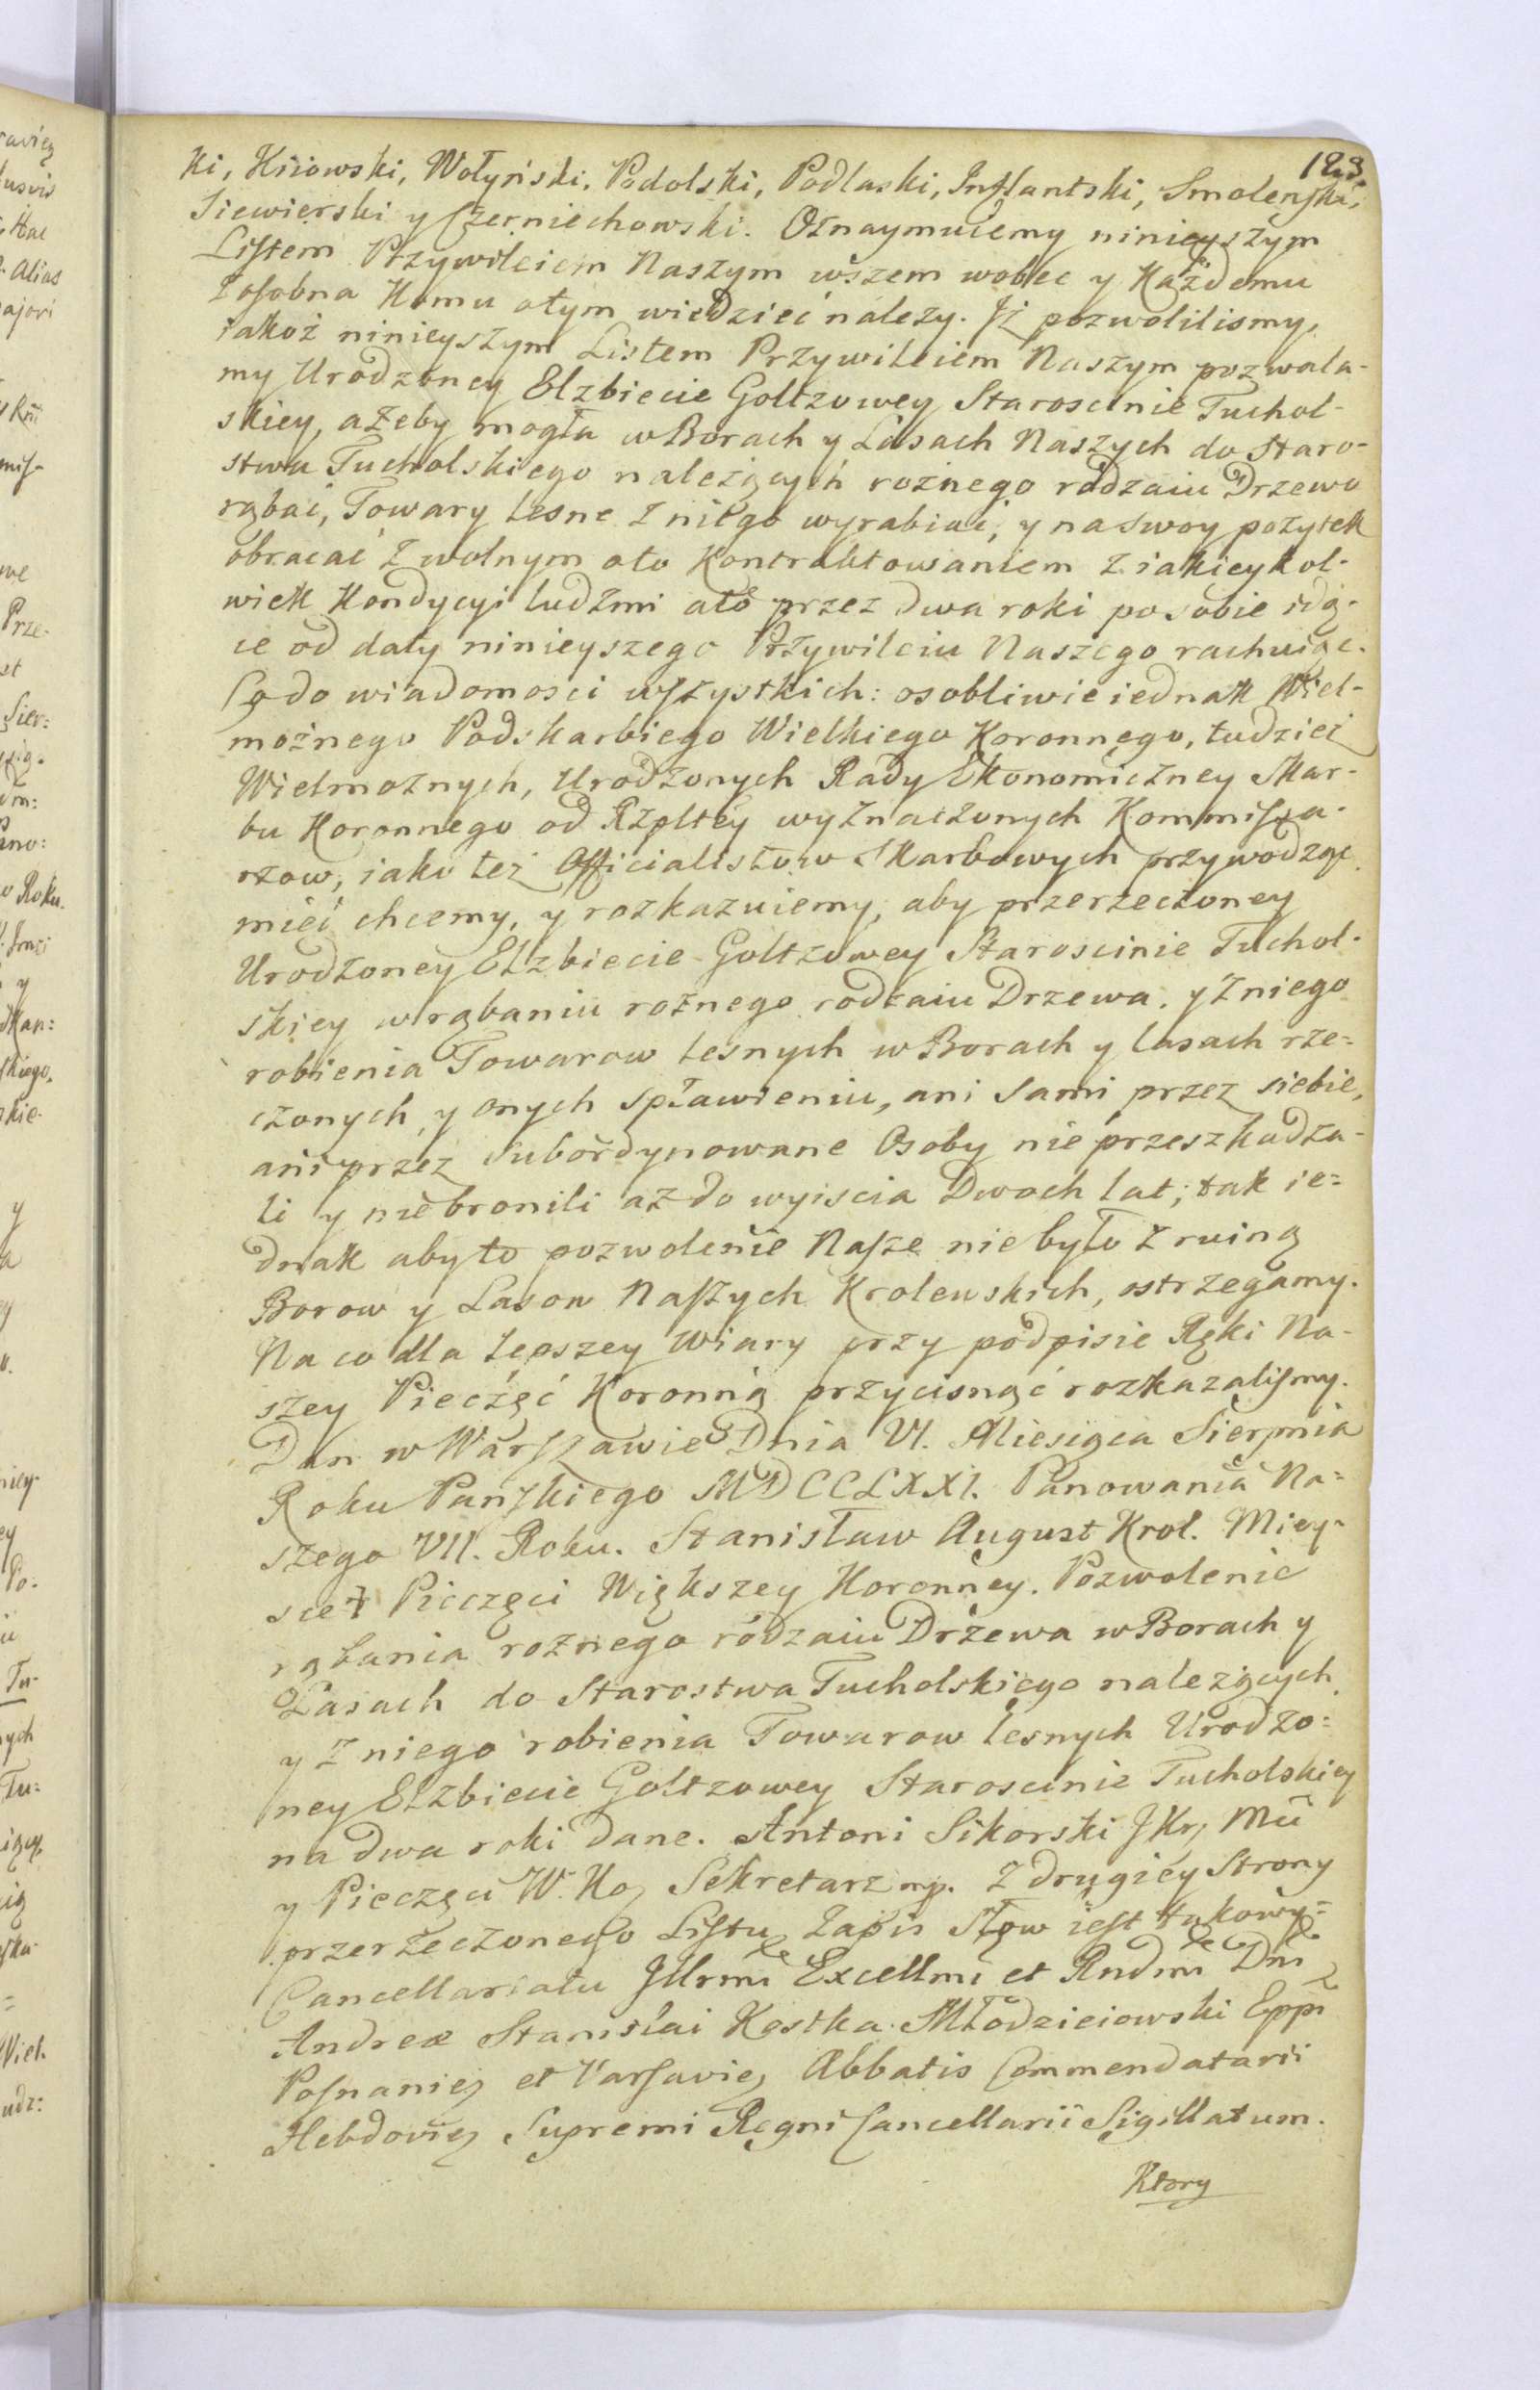 123.
ki, Kiiowski, Wołyński, Podolski, Podlaski, Inflantski, Smolenski,
Siewierski y Czerniechowski. Oznaymuiemy ninieyszym
Listem Przywileiem Naszym wszem wobec y Każdemu
zosobna Komu otym wiedzieć należy. Iż pozwolilismy,
iakoż ninieyszym Listem Przywileiem Naszym pozwala-
my Urodzoney Elzbiecie Goltzowey Staroscinie Tuchol-
skiey, ażeby mogła w Borach y Lasach Naszych do Staro-
stwa Tucholskiego należących rożnego rodzaiu Drzewo
rąbać, Towary lesne z niego wyrabiać, y na swoy pożytek
obracać z wolnym oto Kontraktowaniem z iakieykol-
wiek Kondycyi ludźmi ato przez dwa roki po sobie idą-
ce od daty ninieyszego Przywileiu Naszego rachuiąc.
Co do wiadomosci wszystkich: osobliwie iednak Wiel-
możnego Podskarbiego Wielkiego Koronnego, tudzież
Wielmożnych, Urodzonych Rady Ekonomiczney Skar-
bu Koronnego od Rzpltey wyznaczonych Kommissa-
rzow, iako też Officialistow Skarbowych przywodząc
mieć chcemy, y rozkazuiemy, aby przerzeczoney
Urodzoney Elzbiecie Goltzowey Staroscinie Tuchol-
skiey w rąbaniu rożnego rodzaiu Drzewa, y z niego
robienia Towarow lesnych w Borach y lasach rze=
czonych, y onych spławieniu, ani sami przez siebie,
ani przez Subordynowane Osoby nie przeszkadza-
li y nie bronili aż do wyiscia Dwoch lat; tak ie=
dnak aby to pozwolenie Nasze nie było z ruiną
Borow y Lasow Naszych Krolewskich, ostrzegamy.
Na co dla lepszey wiary przy podpisie Ręki Na-
szey Pieczęć Koronną przycisnąć rozkazalismy.
Dan w Warszawie Dnia VI. Miesiąca Sierpnia
Roku Pańskiego MDCCLXXI. Panowania Na=
szego VII. Roku. Stanisław August Krol. Miey-
sce Pieczęci Większey Koronney. Pozwolenie
rąbania rożnego rodzaiu Drzewa w Borach y
Lasach do Starostwa Tucholskiego należących
y z niego robienia Towarow lesnych Urodzo=
ney Elzbiecie Goltzowey Staroscinie Tucholskiey
na dwa roki dane. Antoni Sikorski JKr Mci
y Pieczęci W. Ko Sekretarz mp. Z drugiey Strony
przerzeczonego Listu Zapis Słow iest takowy=
Cancellariatu Illrmi Excellmi et Rndmi Dni
Andreæ Stanislai Kostka Młodzieiowski Eppi
Posnanię et Varsavię Abbatis Commendatarii
Hebdovię Supremi Regni Cancellarii Sigillatum.
Ktory